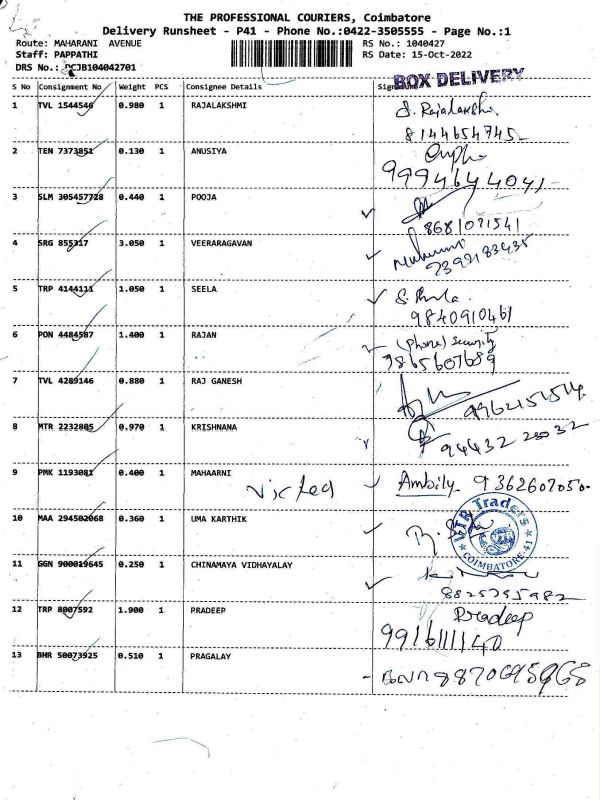 THE PROFESSIONAL COURIERS, Coimbatore
Delivery Runsheet - P41 - Phone No.:0422-3505555 - Page No.:1
Route: MAHARANI AVENUE RS No.: 1040427
Staff: PAPPATHI RS Date: 15-Oct-2022
DRS No.: PCJB104042701
BOX DELIVERY
S No Consignment No Weight PCS Consignee Details
1 TVL 1544546 0.980 1 RAJALAKSHMI S. Rajalakshmi
8144654745
2 TEN 7373851 0.130 1 ANUSIYA
9994644041
3 SLM 305457728 0.440 1 POOJA
8681071541
4 SRG 855317 3.050 1 VEERARAGAVAN
7399183435
5 TRP 4144111 1.050 1 SEELA
9840910461
6 PON 4484587 1.400 1 RAJAN (Phone) Security
9865607689
7 TVL 4289146 0.880 1 RAJ GANESH
8 MTR 2232805 0.970 1 KRISHNANA
9 PMK 1193081 0.400 1 MAHAARNI Ambily 9362607050
10 MAA 294502068 0.360 1 UMA KARTHIK
VTR Traders
COIMBATORE-41
11 GGN 900019645 0.250 1 CHINAMAYA VIDHAYALAY
8825795982
12 TRP 8007592 1.900 1 PRADEEP Pradeep
9916111140
13 BHR 50073925 0.510 1 PRAGALAY